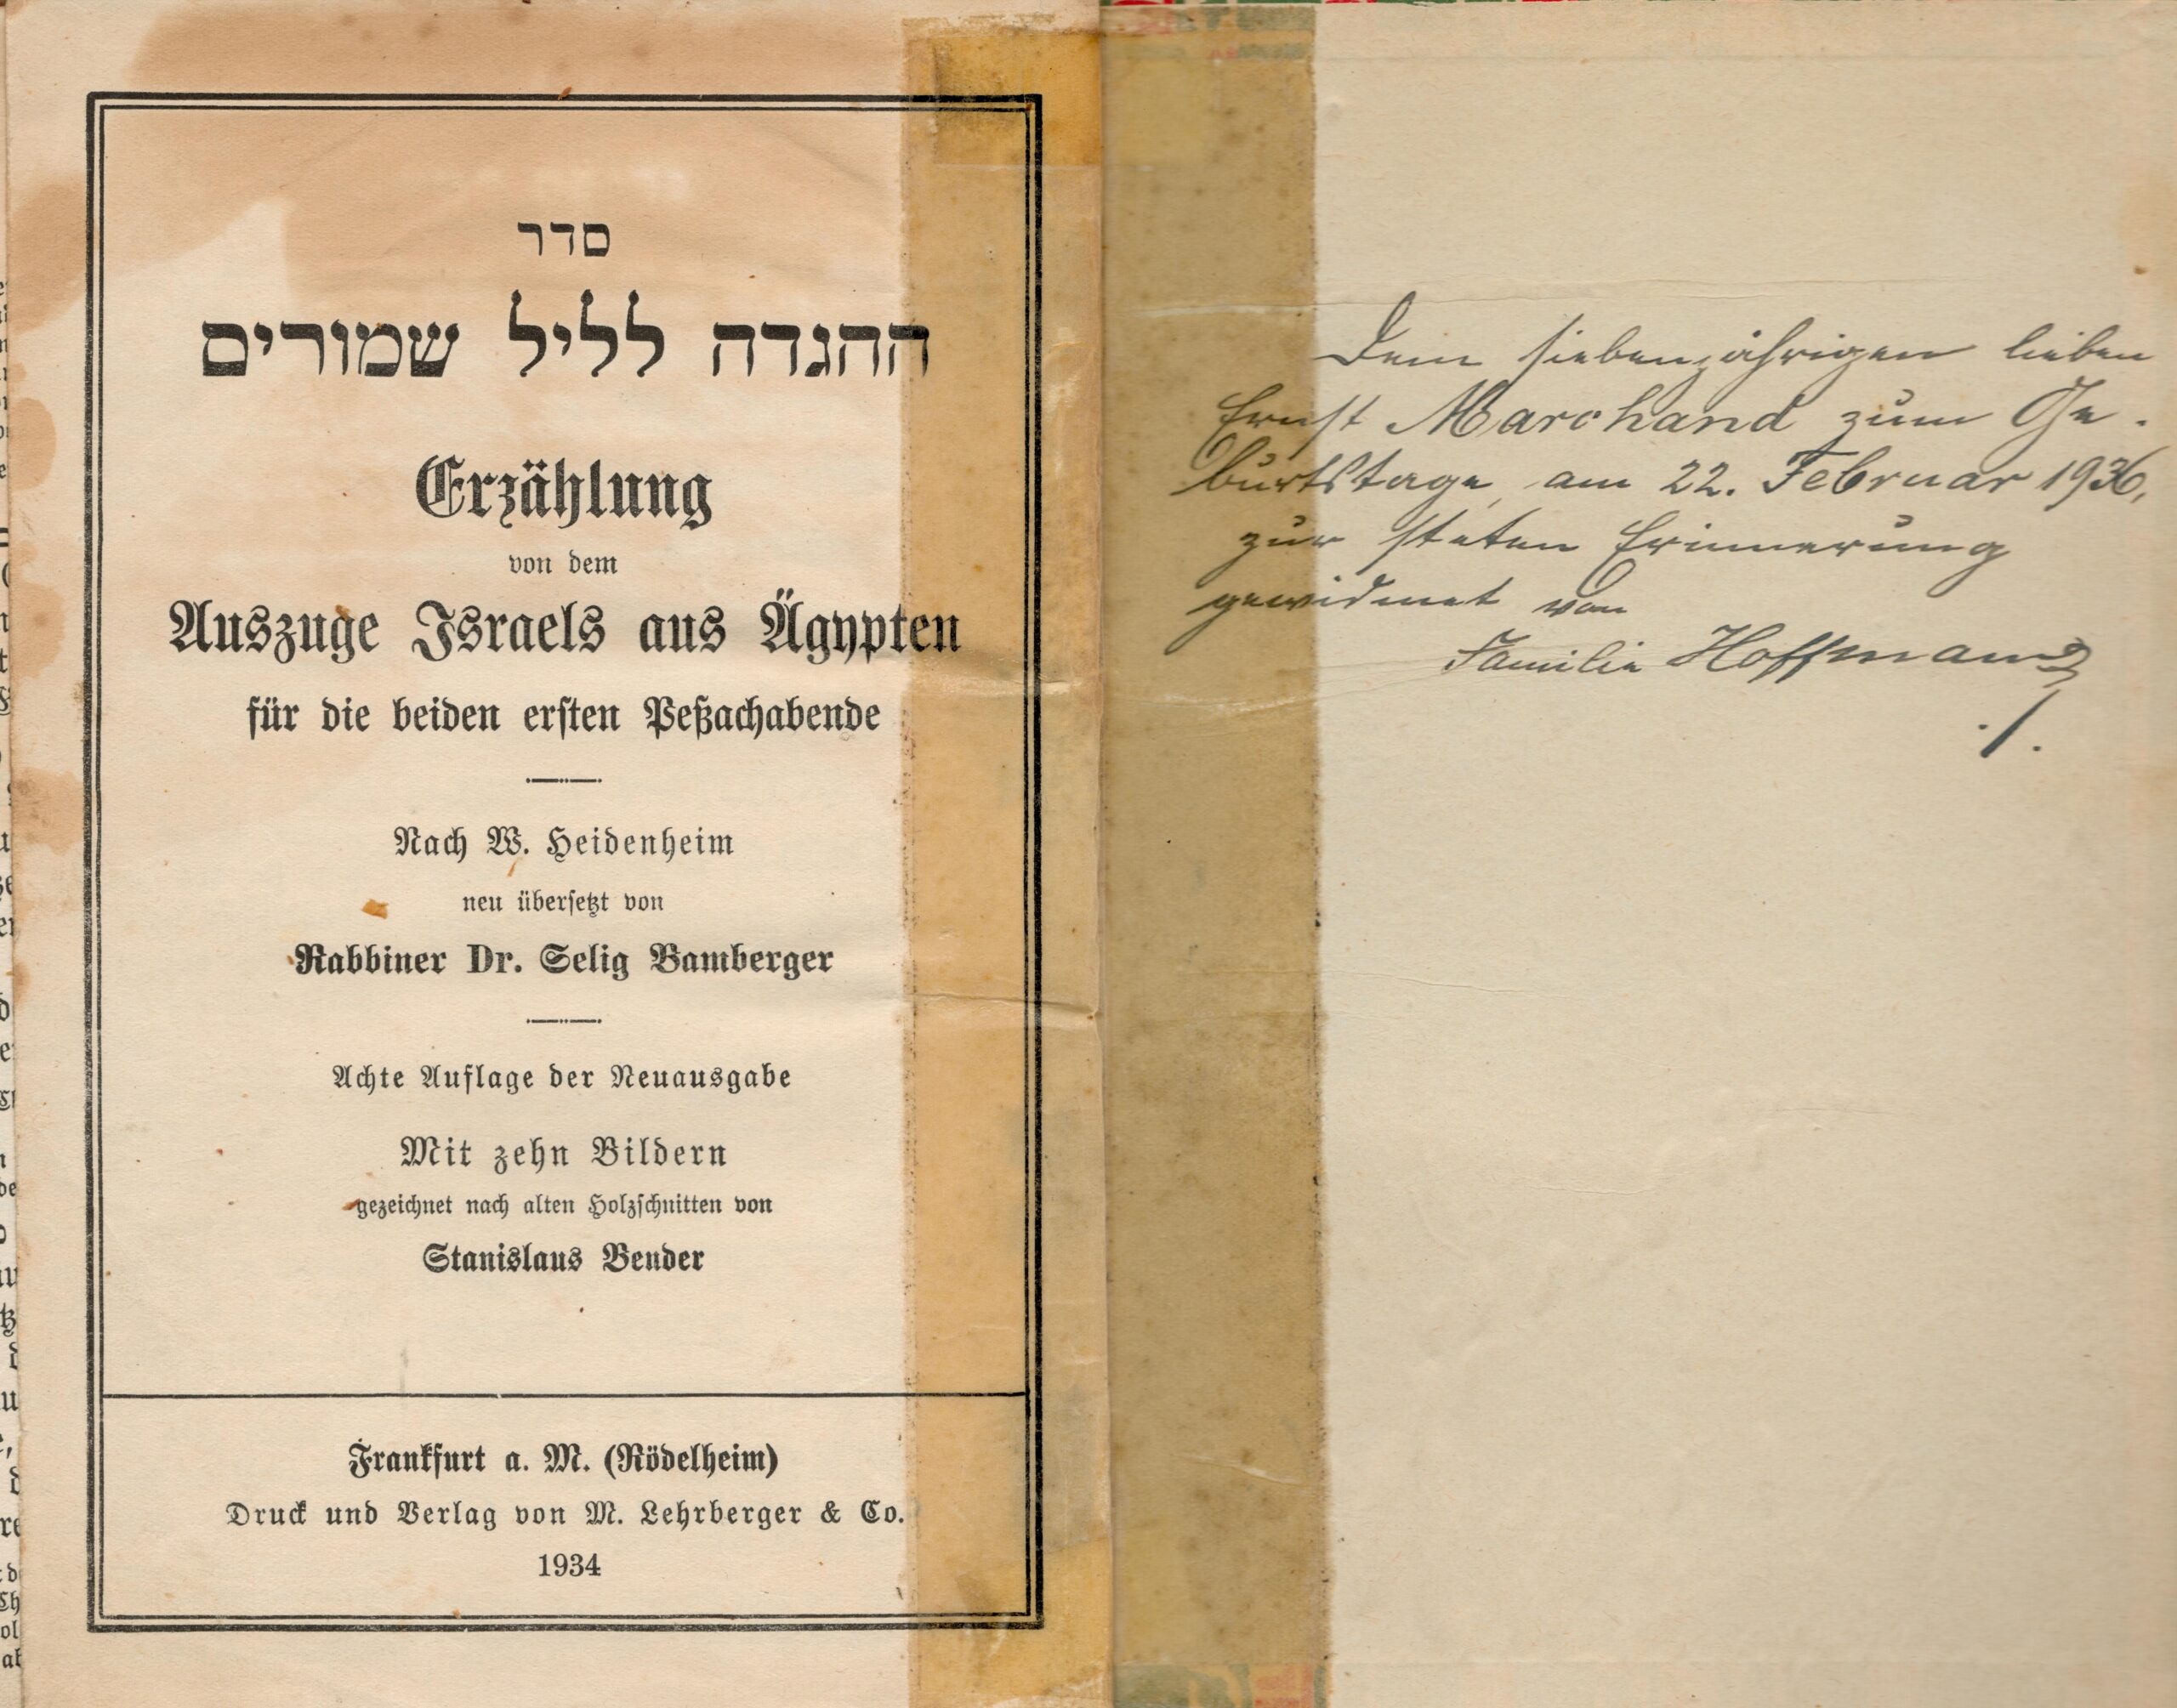 סדר
ההגדה לליל שמורים
Erzählung
von dem
Auszuge Israels aus Ägypten
für die beiden ersten Peßachabende
Nach W. Heidenheim
neu übersetzt von
Rabbiner Dr. Selig Bamberger
Achte Auflage der Neuausgabe
Mit zehn Bildern
gezeichnet nach alten Holzschnitten von
Stanislaus Bender
Frankfurt a. M. (Rödelheim)
Druck und Verlag von M. Lehrberger & Co.
1934
Dem siebenjährigen lieben
Ernst Marchand zum Ge-
burtstage, am 22. Februar 1936,
zur steten Erinnerung
gewidmet von
Familie Hoffmann
./.